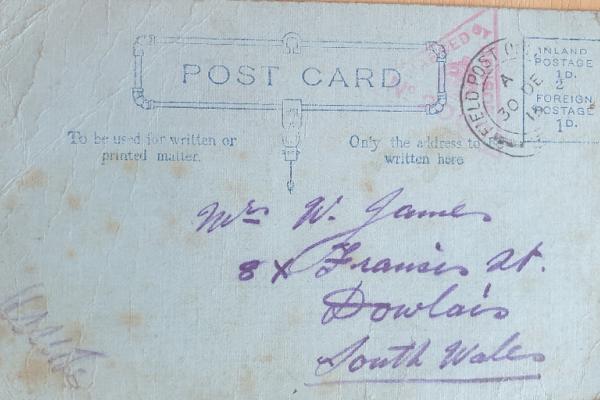 POST CARD
PASSED BY
FIELD POST O
A
30 DE
15
INLAND
POSTAGE
½D.
FOREIGN
POSTAGE
1D.
To be used for written or
printed matter.
Only the address to be
written here
Mrs W. James
8 Fransis St.
Dowlais
South Wales